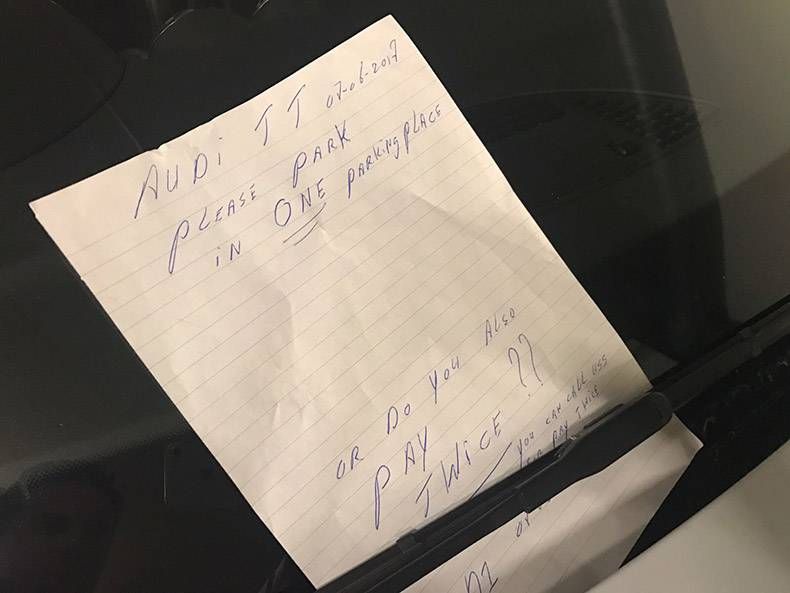 AUDi TT 07-06-2017
PLEASE PARK
iN ONE PARKiNG PLACE
OR DO YOU ALSO
PAY TWiCE ??
YOU CAN CALL USS
PAY TWiCE